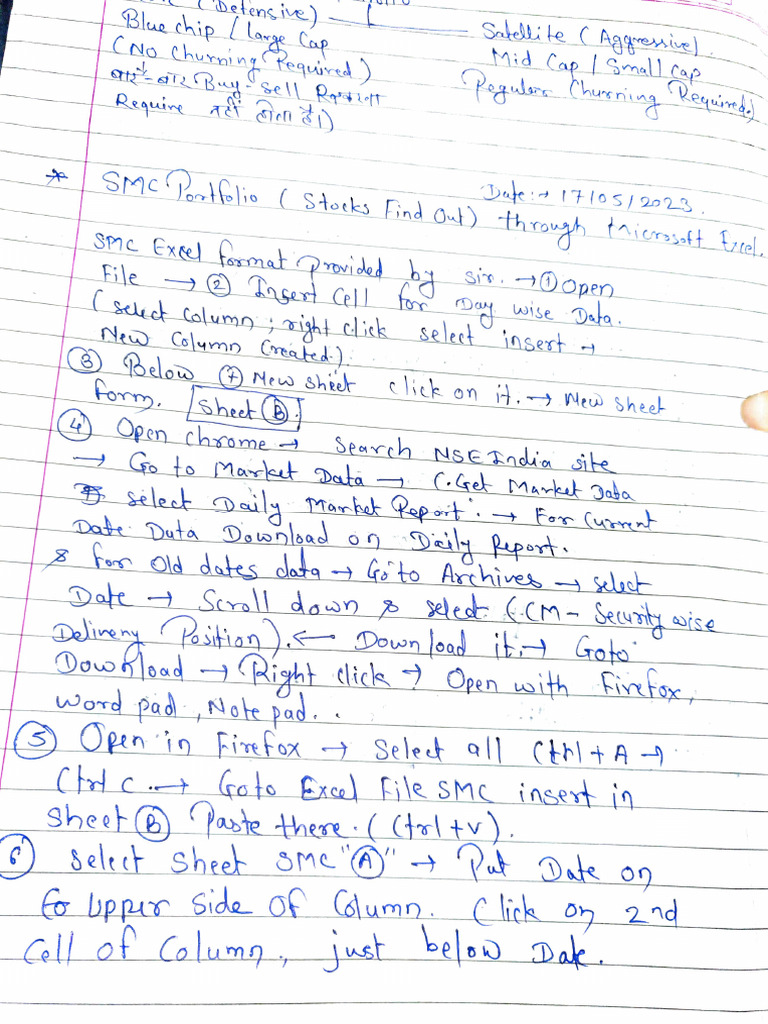 (Defensive)
Blue chip / Large Cap
Satellite (Aggressive).
(No Churning Required)
Mid Cap / Small Cap
बार-बार Buy-Sell
Regular Churning Required.)
Require नहीं होता है।)
* SMC Portfolio (Stocks Find Out) through Microsoft Excel.
Date:→ 17/05/2023.
SMC Excel format Provided by sir. → ① Open
File → ② Insert Cell for Day wise Data.
(select Column ; right click select insert →
New Column Created.)
③ Below ⊕ New sheet click on it. → New sheet
form. Sheet Ⓑ.
④ Open chrome → Search NSE India site
→ Go to Market Data → (.Get Market Data
select Daily Market Report. → For Current
Date Data Download on Daily Report.
& for Old dates data → Go to Archives → select
Date → Scroll down & select (.CM - Security wise
Delivery Position). ← Download it. → Goto
Download → Right click → Open with Firefox,
word pad, Note pad..
⑤ Open in Firefox → Select all Ctrl + A →
Ctrl C. → Goto Excel File SMC insert in
Sheet Ⓑ Paste there. (Ctrl+V).
⑥ Select Sheet SMC "Ⓐ" → Put Date on
to Upper Side Of Column. Click on 2nd
Cell of Column, just below Date.